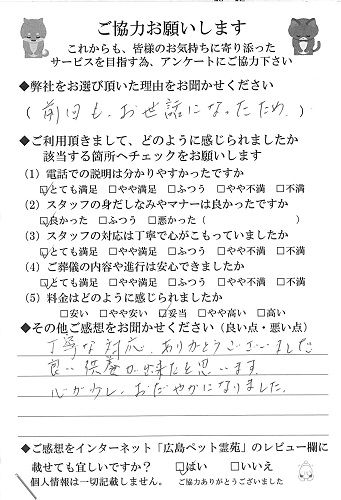 ご協力お願いします
これからも、皆様のお気持ちに寄り添った
サービスを目指す為、アンケートにご協力下さい
◆弊社をお選び頂いた理由をお聞かせください
(前回も、お世話になったため、)
◆ご利用頂きまして、どのように感じられましたか
該当する箇所へチェックをお願いします
(1)電話での説明は分かりやすかったですか
☑とても満足 □やや満足 □ふつう □やや不満 □不満
(2)スタッフの身だしなみやマナーは良かったですか
☑良かった □ふつう □悪かった( )
(3)スタッフの対応は丁寧で心がこもっていましたか
☑とても満足 □やや満足 □ふつう □やや不満 □不満
(4)ご葬儀の内容や進行は安心できましたか
☑とても満足 □やや満足 □ふつう □やや不満 □不満
(5)料金はどのように感じられましたか
□安い □やや安い ☑妥当 □やや高い □高い
◆その他ご感想をお聞かせください(良い点・悪い点)
丁寧な対応、ありがとうございました
良い供養が出来たと思います。
心が少し、おだやかになりました。
◆ご感想をインターネット「広島ペット霊苑」のレビュー欄に
載せても宜しいですか? ☑はい □いいえ
個人情報は一切記載しません。 ご協力ありがとうございました